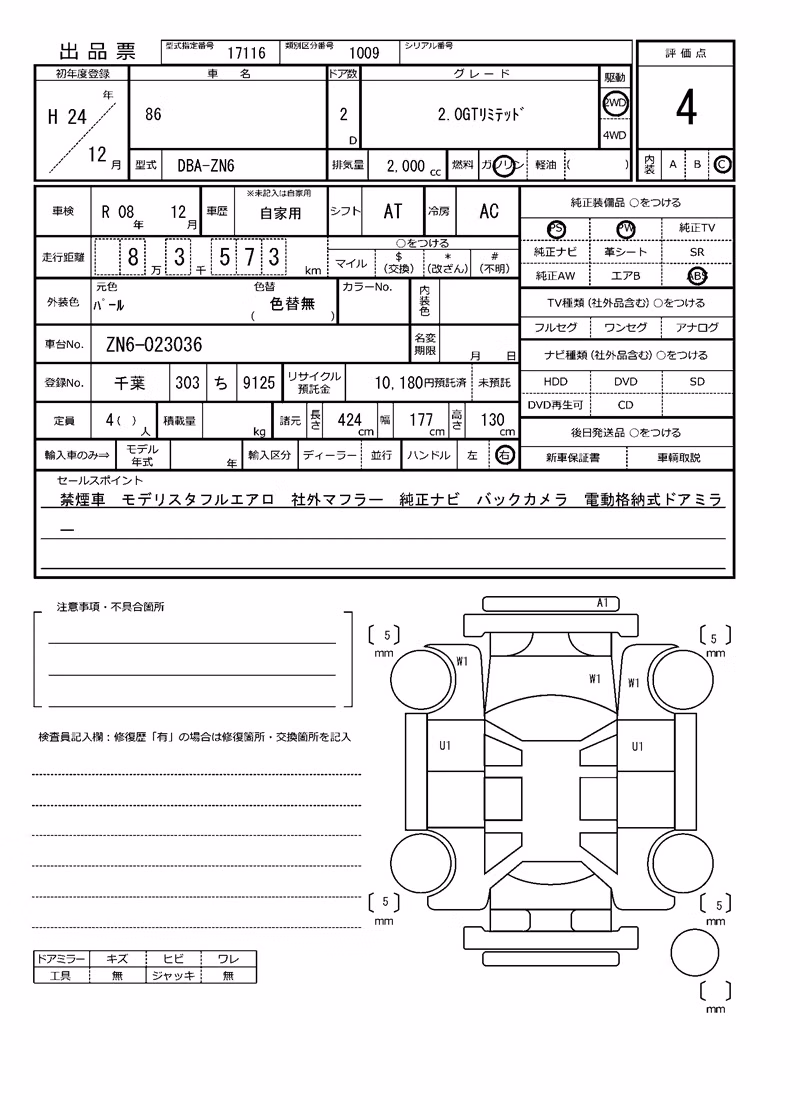 出品票
型式指定番号 17116 類別区分番号 1009 シリアル番号
初年度登録 車 名 ドア数 グレード 駆動 評価点
H 24 年 12 月
86
2 D
2.0GTリミテッド
2WD
4WD
4
型式 DBA-ZN6 排気量 2,000 cc 燃料 ガソリン 軽油 ( )
内装 A B C
車検 R 08 年 12 月 車歴 ※未記入は自家用 自家用 シフト AT 冷房 AC
純正装備品 ○をつける
PS PW 純正TV
走行距離 8 万 3 千 5 7 3 km
○をつける
マイル $ (交換) * (改ざん) # (不明)
純正ナビ 革シート SR
純正AW エアB ABS
外装色 元色 パール 色替 ( 色替無 ) カラーNo. 内装色
TV種類(社外品含む)○をつける
フルセグ ワンセグ アナログ
車台No. ZN6-023036 名変期限 月 日
ナビ種類(社外品含む)○をつける
登録No. 千葉 303 ち 9125 リサイクル預託金 10,180円預託済 未預託
HDD DVD SD
DVD再生可 CD
定員 4( )人 積載量 kg 諸元 長さ 424 cm 幅 177 cm 高さ 130 cm
後日発送品 ○をつける
輸入車のみ⇒ モデル年式 年 輸入区分 ディーラー 並行 ハンドル 左 右
新車保証書 車輌取説
セールスポイント
禁煙車 モデリスタフルエアロ 社外マフラー 純正ナビ バックカメラ 電動格納式ドアミラ
ー
注意事項・不具合箇所
A1
5 mm
5 mm
W1
W1
W1
検査員記入欄：修復歴「有」の場合は修復箇所・交換箇所を記入
U1
U1
5 mm
5 mm
ドアミラー キズ ヒビ ワレ
工具 無 ジャッキ 無
mm